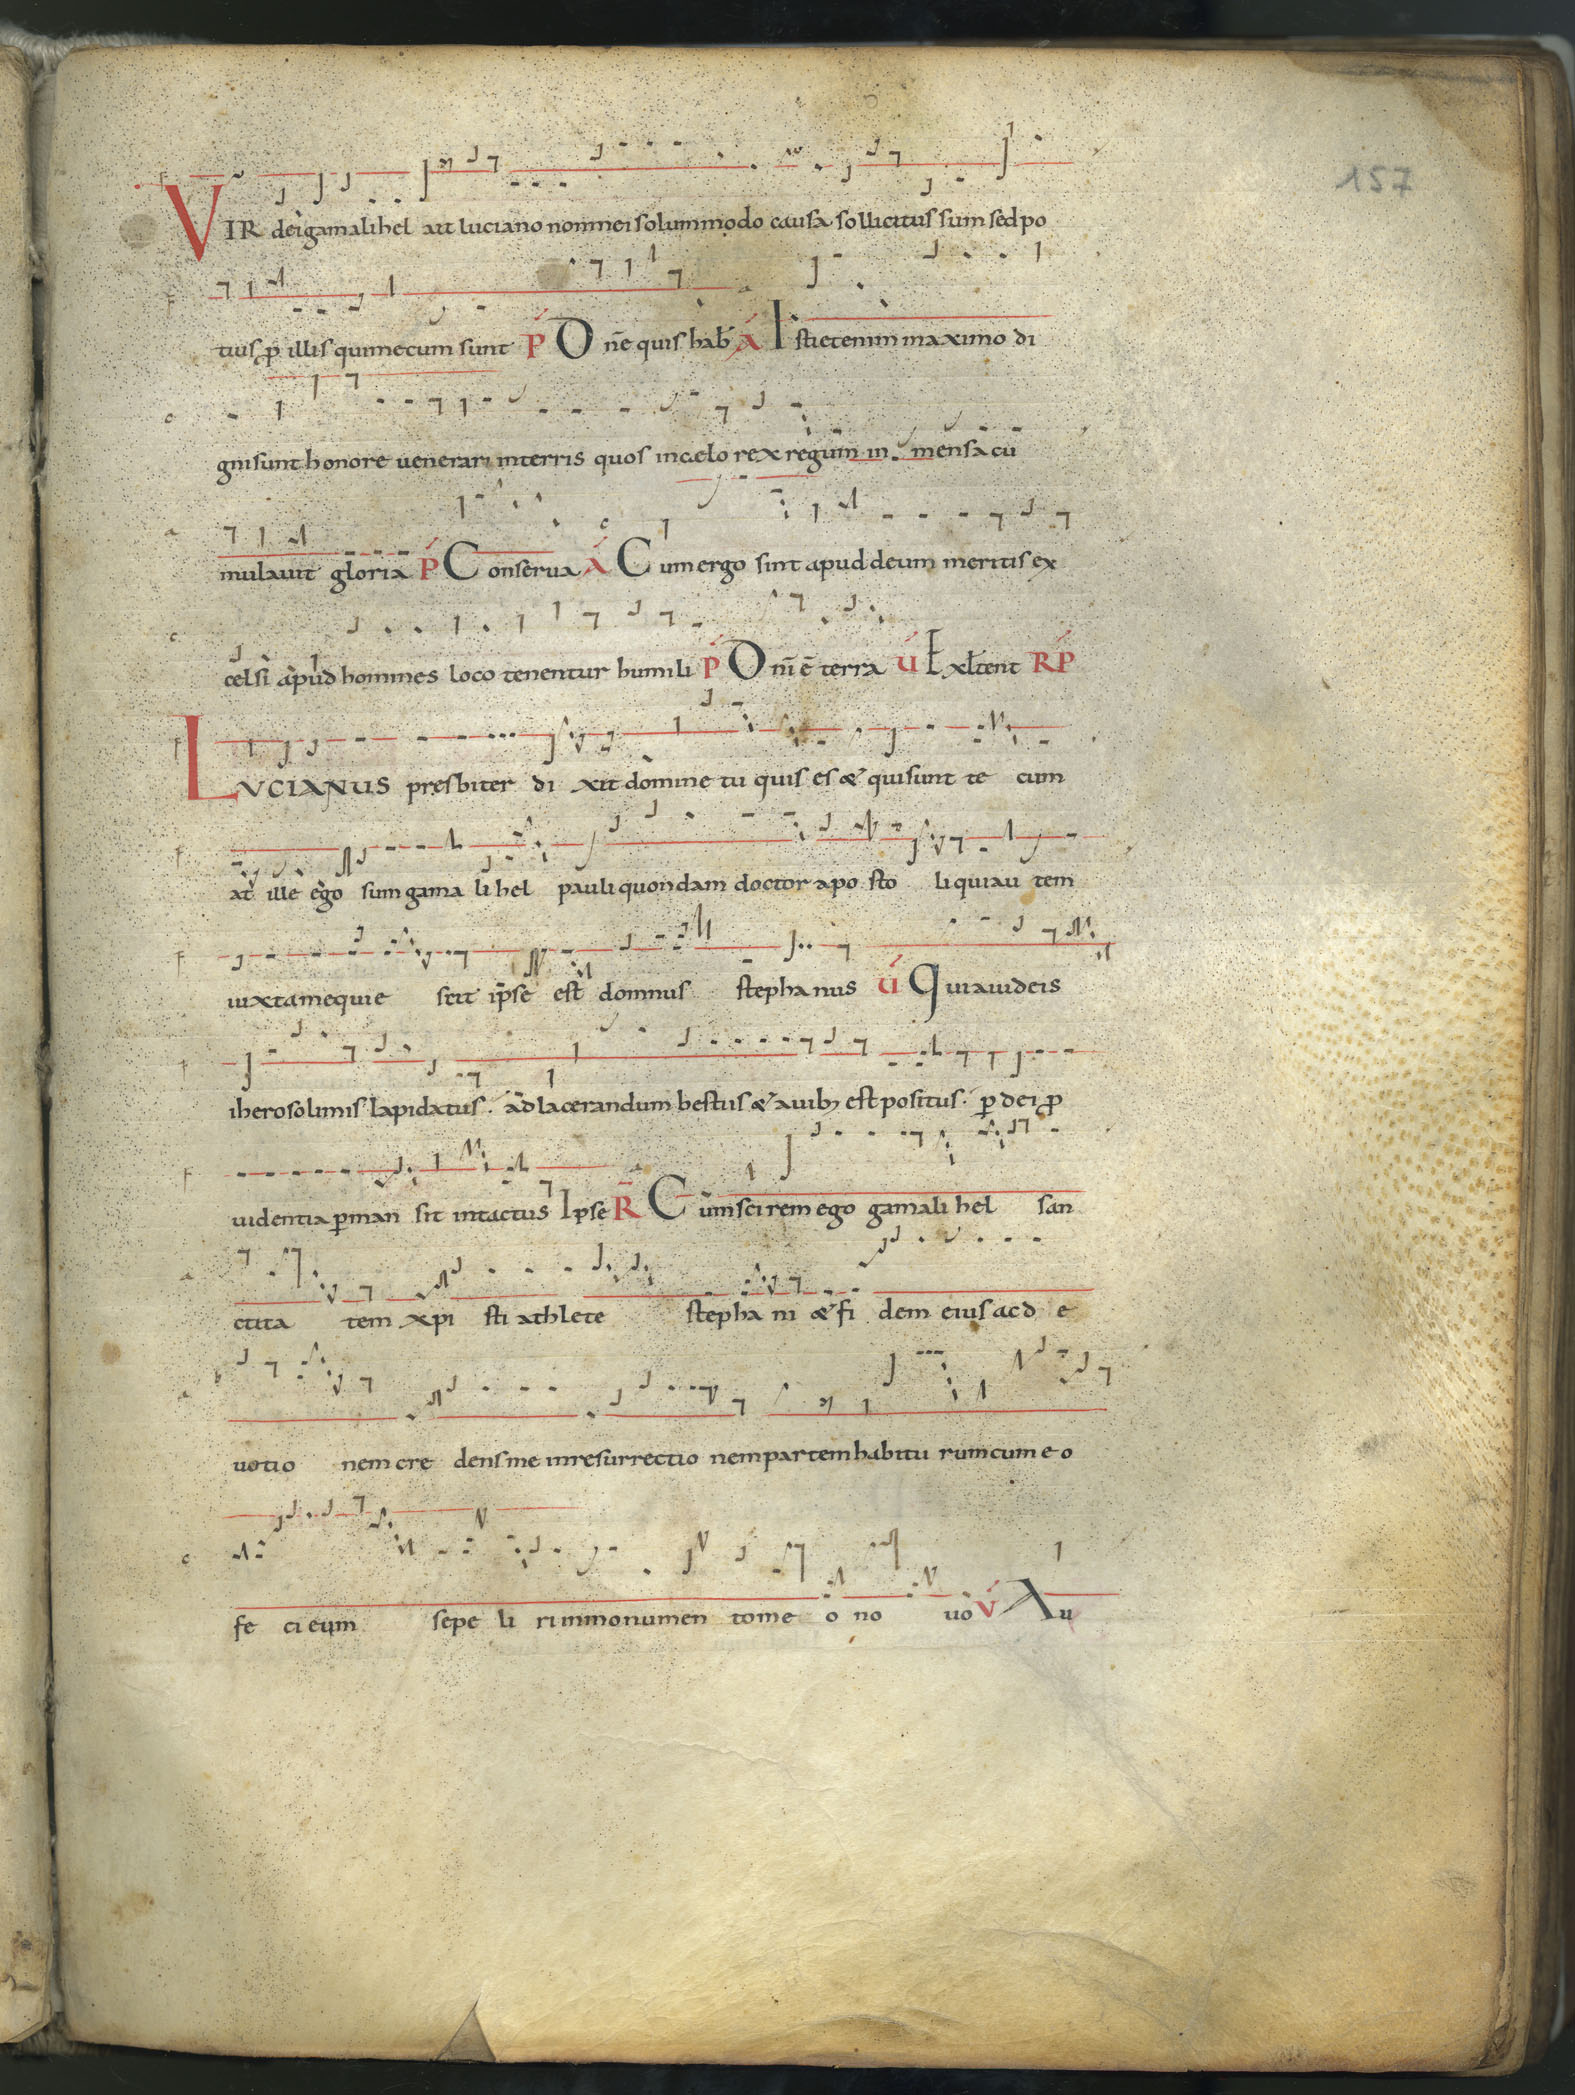 157
VIR dei gamalihel ait luciano non mei solummodo causa sollicitus sum sed po
tius p illis qui mecum sunt P Dne quis hab A Isti etenim maximo di
gni sunt honore uenerari in terris quos in cælo rex regum in mensa cū
mulauit gloria P Conserua A Cum ergo sint apud deum meritis ex
celsi apud homines loco tenentur humili P Dn̄i ē terra V Exl̄tent RP
LVCIANUS presbiter di xit domine tu quis es & qui sunt te cum
at ille ego sum gama li hel pauli quondam doctor apo sto li qui au tem
iuxta me quie scit ip̄se est domnus stepha nus V Qui a iudeis
iherosolimis lapidatus. ad lacerandum bestiis & auib; est positus. p dei p
uidentia pman sit intactus Ipse R Cum scirem ego gamali hel san
ctita tem xpi sti athlete stepha ni & fi dem eius ac d e
uotio nem cre dens me in resurrectio nem partem habitu rum cum e o
fe ci eum sepe li ri in monumen to me o no uo V Au